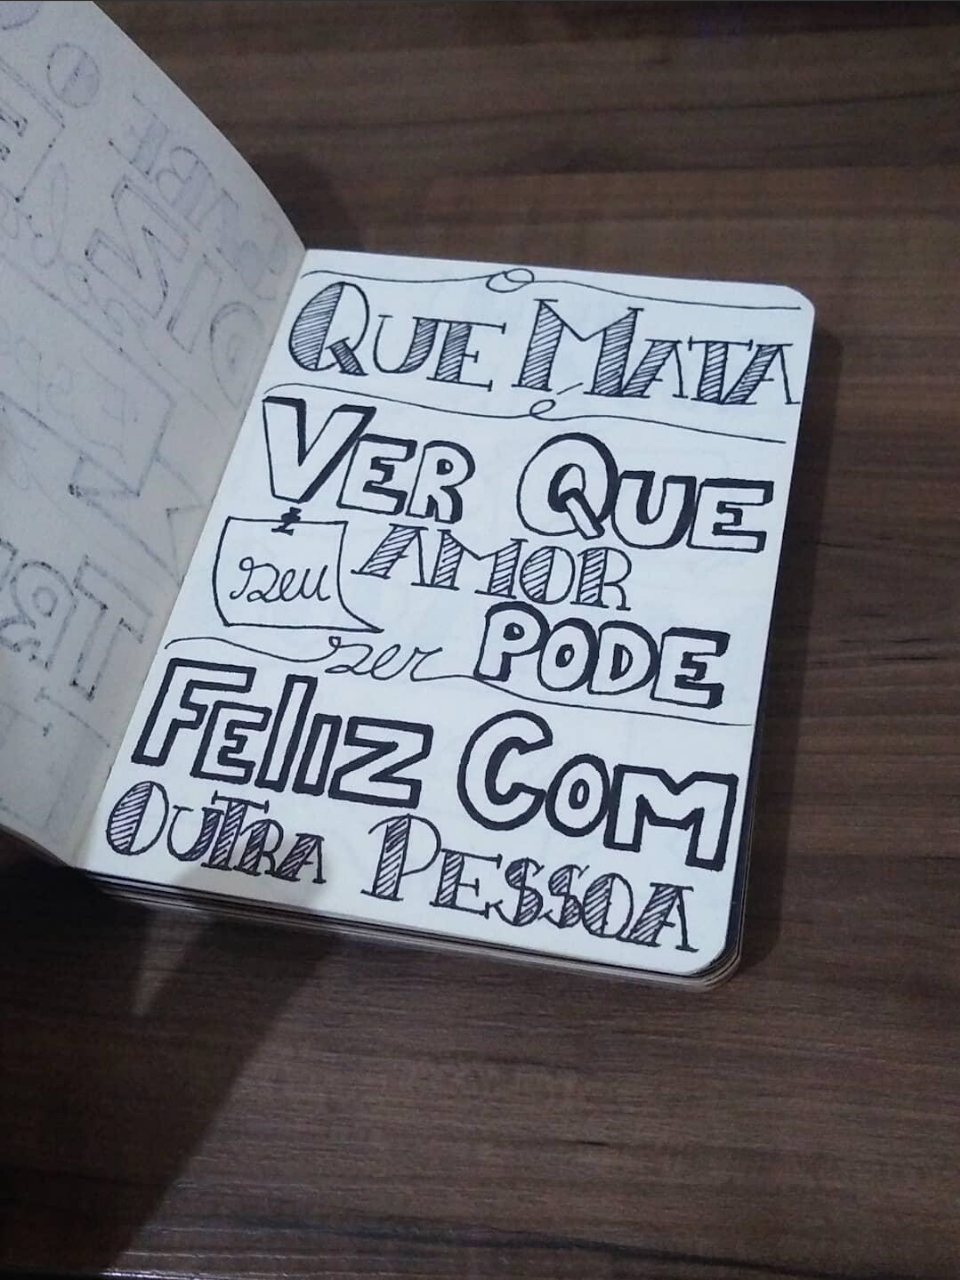 QUE MATA
VER QUE
seu AMOR
ser PODE
FELIZ COM
OUTRA PESSOA